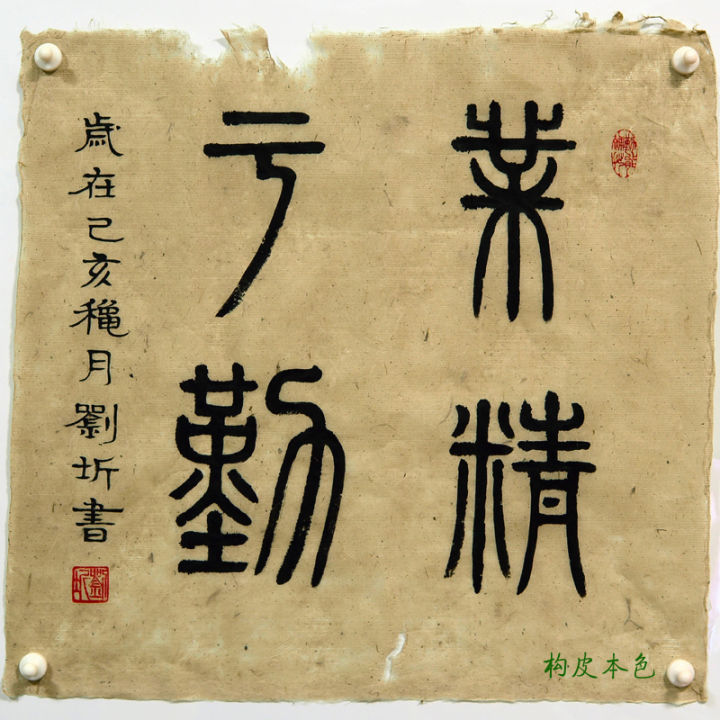 業精
于勤
歲在己亥穐月劉圻書
劉圻
构皮本色